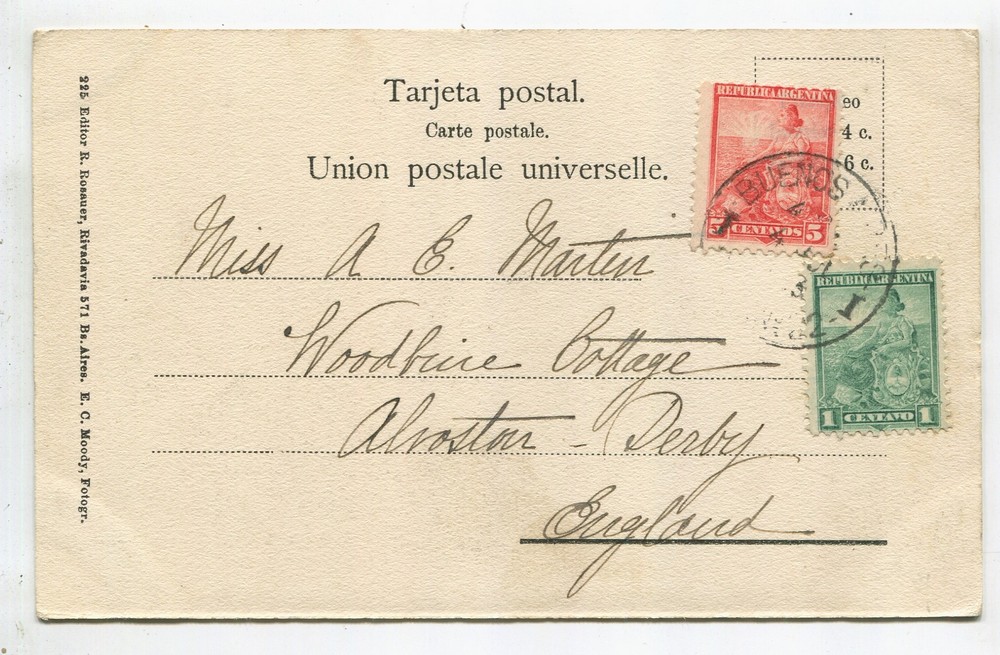 Tarjeta postal.
Carte postale.
Union postale universelle.
eo
4 c.
6 c.
REPUBLICA ARGENTINA
5 CENTAVOS 5
BUENOS
REPUBLICA ARGENTINA
1 CENTAVO 1
Miss A E. Martin
Woodbine Cottage
Alvaston - Derby
England
225 Editor R. Rosauer, Rivadavia 571 Bs. Aires. E. C. Moody, Fotogr.